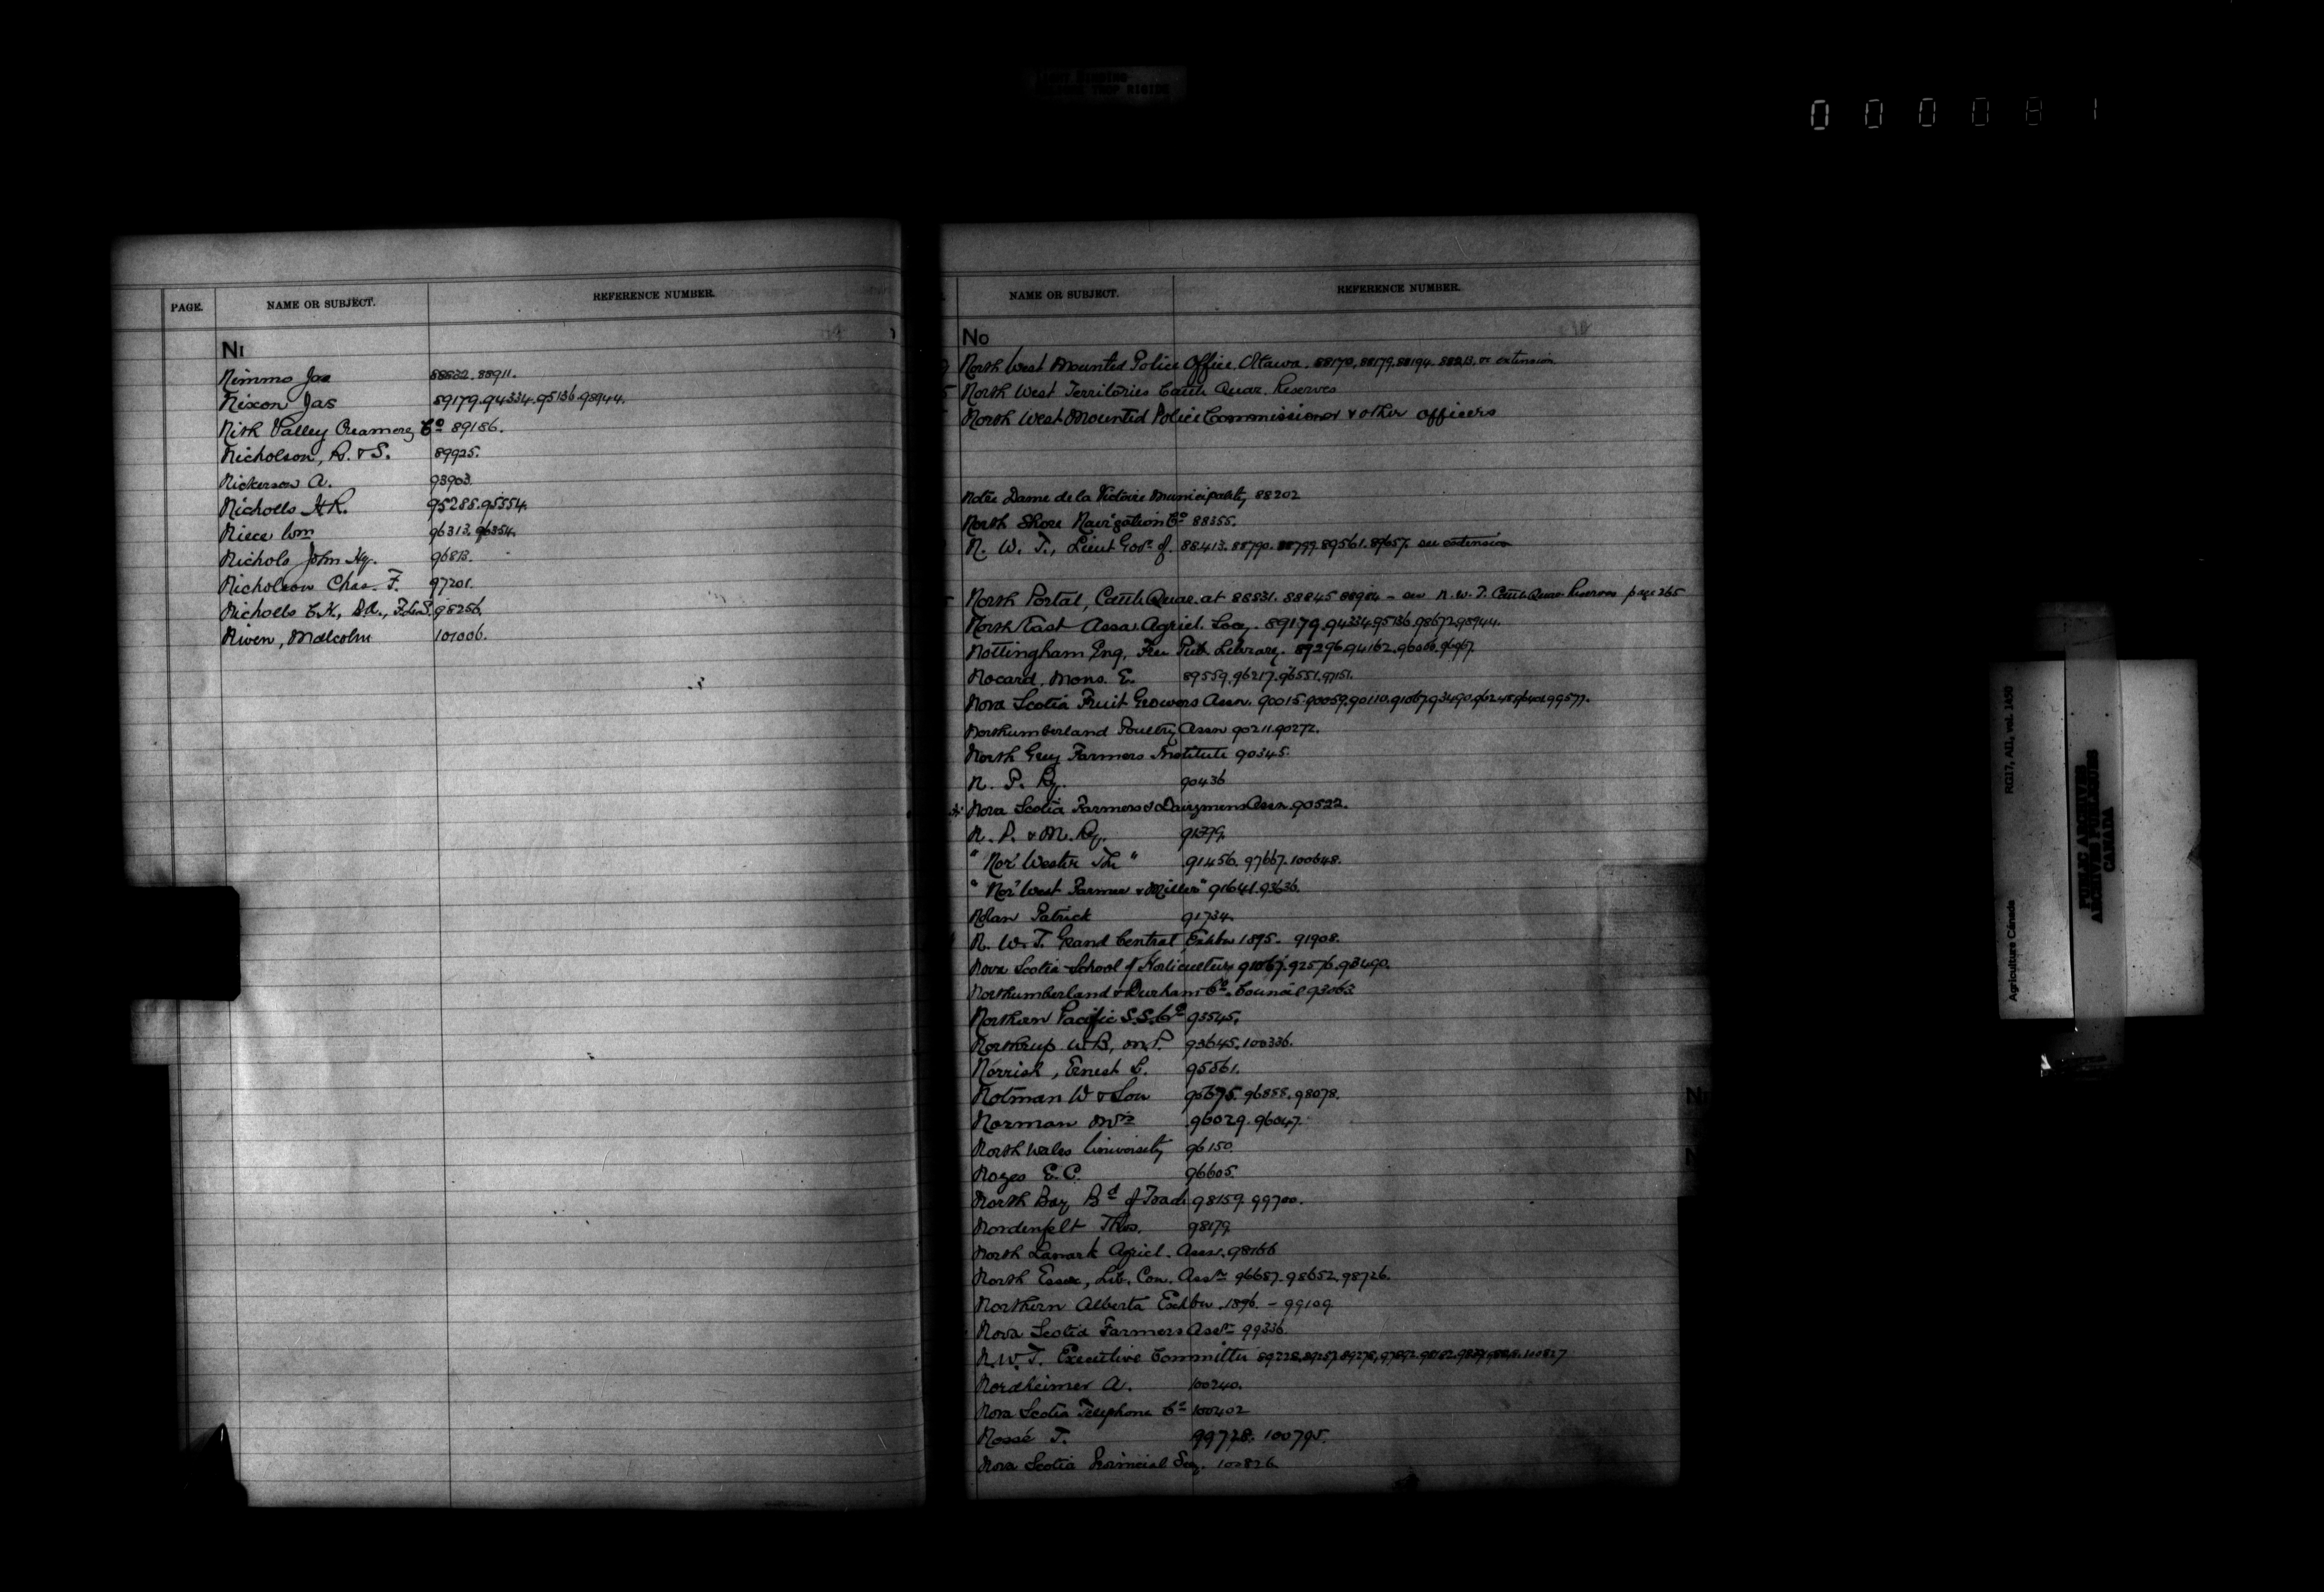 000081
PAGE. NAME OR SUBJECT. REFERENCE NUMBER.
NI
Nimmo Jas 88832. 88911.
Nixon Jas 89179. 94334. 95136. 98944.
Nith Valley Creamery Co 89186.
Nicholson, R. & S. 89925.
Nickerson A. 93903.
Nicholls H.R. 95288. 95554.
Niece Wm 96313. 96354.
Nichols John Hy. 96813.
Nicholson Chas. F. 97201.
Nicholls 98256.
Niven, Malcolm 101006.
NAME OR SUBJECT. REFERENCE NUMBER.
NO
North West Mounted Police Office Ottawa. 88170. 88179. 88194. 88213. extension
North West Territories Cattle Quar. Reserves
North West Mounted Police Commissioner & other officers
Notre Dame de la Victoire Municipality 88202
North Shore Navigation Co 88355.
N. W. T., Lieut Govr of. 88413. 88790. 88799. 89561. 89657. see extension
North Portal, Cattle Quar. at 88831. 88845 88984 - see N.W.T. Cattle Quar. Reserves page 265
North East Assa. Agricl. Socy. 89179. 94334. 95136. 98672. 98944.
Nottingham Eng, Free Pub. Library. 89296. 94162.
Nocard. Mons. E. 89559. 96217. 96551. 97151.
Nova Scotia Fruit Growers Assn. 90015. 90059. 90110. 91067. 93490. 99577.
Northumberland Poultry Assn 90211. 90272.
North Grey Farmers Institute 90345.
N. P. Ry. 90436
Nova Scotia Farmers & Dairymens Assn. 90522.
N. P. & M. Ry. 91379.
" Nor' Wester The " 91456. 97667. 100648.
" Nor' West Farmer & Miller" 91641. 93636.
Nolan Patrick 91734.
N. W. T. Grand Central Exhbn 1895. 91908.
Nova Scotia School of Horticulture 91067. 92576. 93490.
Northumberland & Durham Co. Council 93063
Northern Pacific S.S. Co 93545.
Northrup W.B, M.P. 93645. 100336.
Norrish, Ernest L. 95561.
Notman W & Son 95675. 96858. 98078.
Norman Mrs 96029. 96047.
North Wales University 96150.
Noyes E.C. 96605.
North Bay Bd of Trade 98159. 99700.
Nordenfelt Thos. 98179.
North Lanark Agricl. Assn. 98166
North Essex, Lib. Con. Assn 96687. 98652. 98726.
Northern Alberta Exhbn. 1896. - 99109.
Nova Scotia Farmers Assn 99336.
N.W.T. Executive Committee 89228. 89257. 89278. 97892. 98182. 100827
Nordheimer A. 100240.
Nova Scotia Telephone Co 100402
Nossé T. 99728. 100795.
Nova Scotia Provincial Secy. 100826.
Agriculture Canada RG17, AII, vol. 1450
PUBLIC ARCHIVES
ARCHIVES PUBLIQUES
CANADA